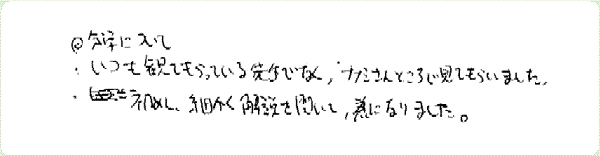 ◎分洋について
・いつも観てもらっている先生でなく、ナナミさんところに見てもらいました。
・初めし、細かく解説を聞いて、為になりました。